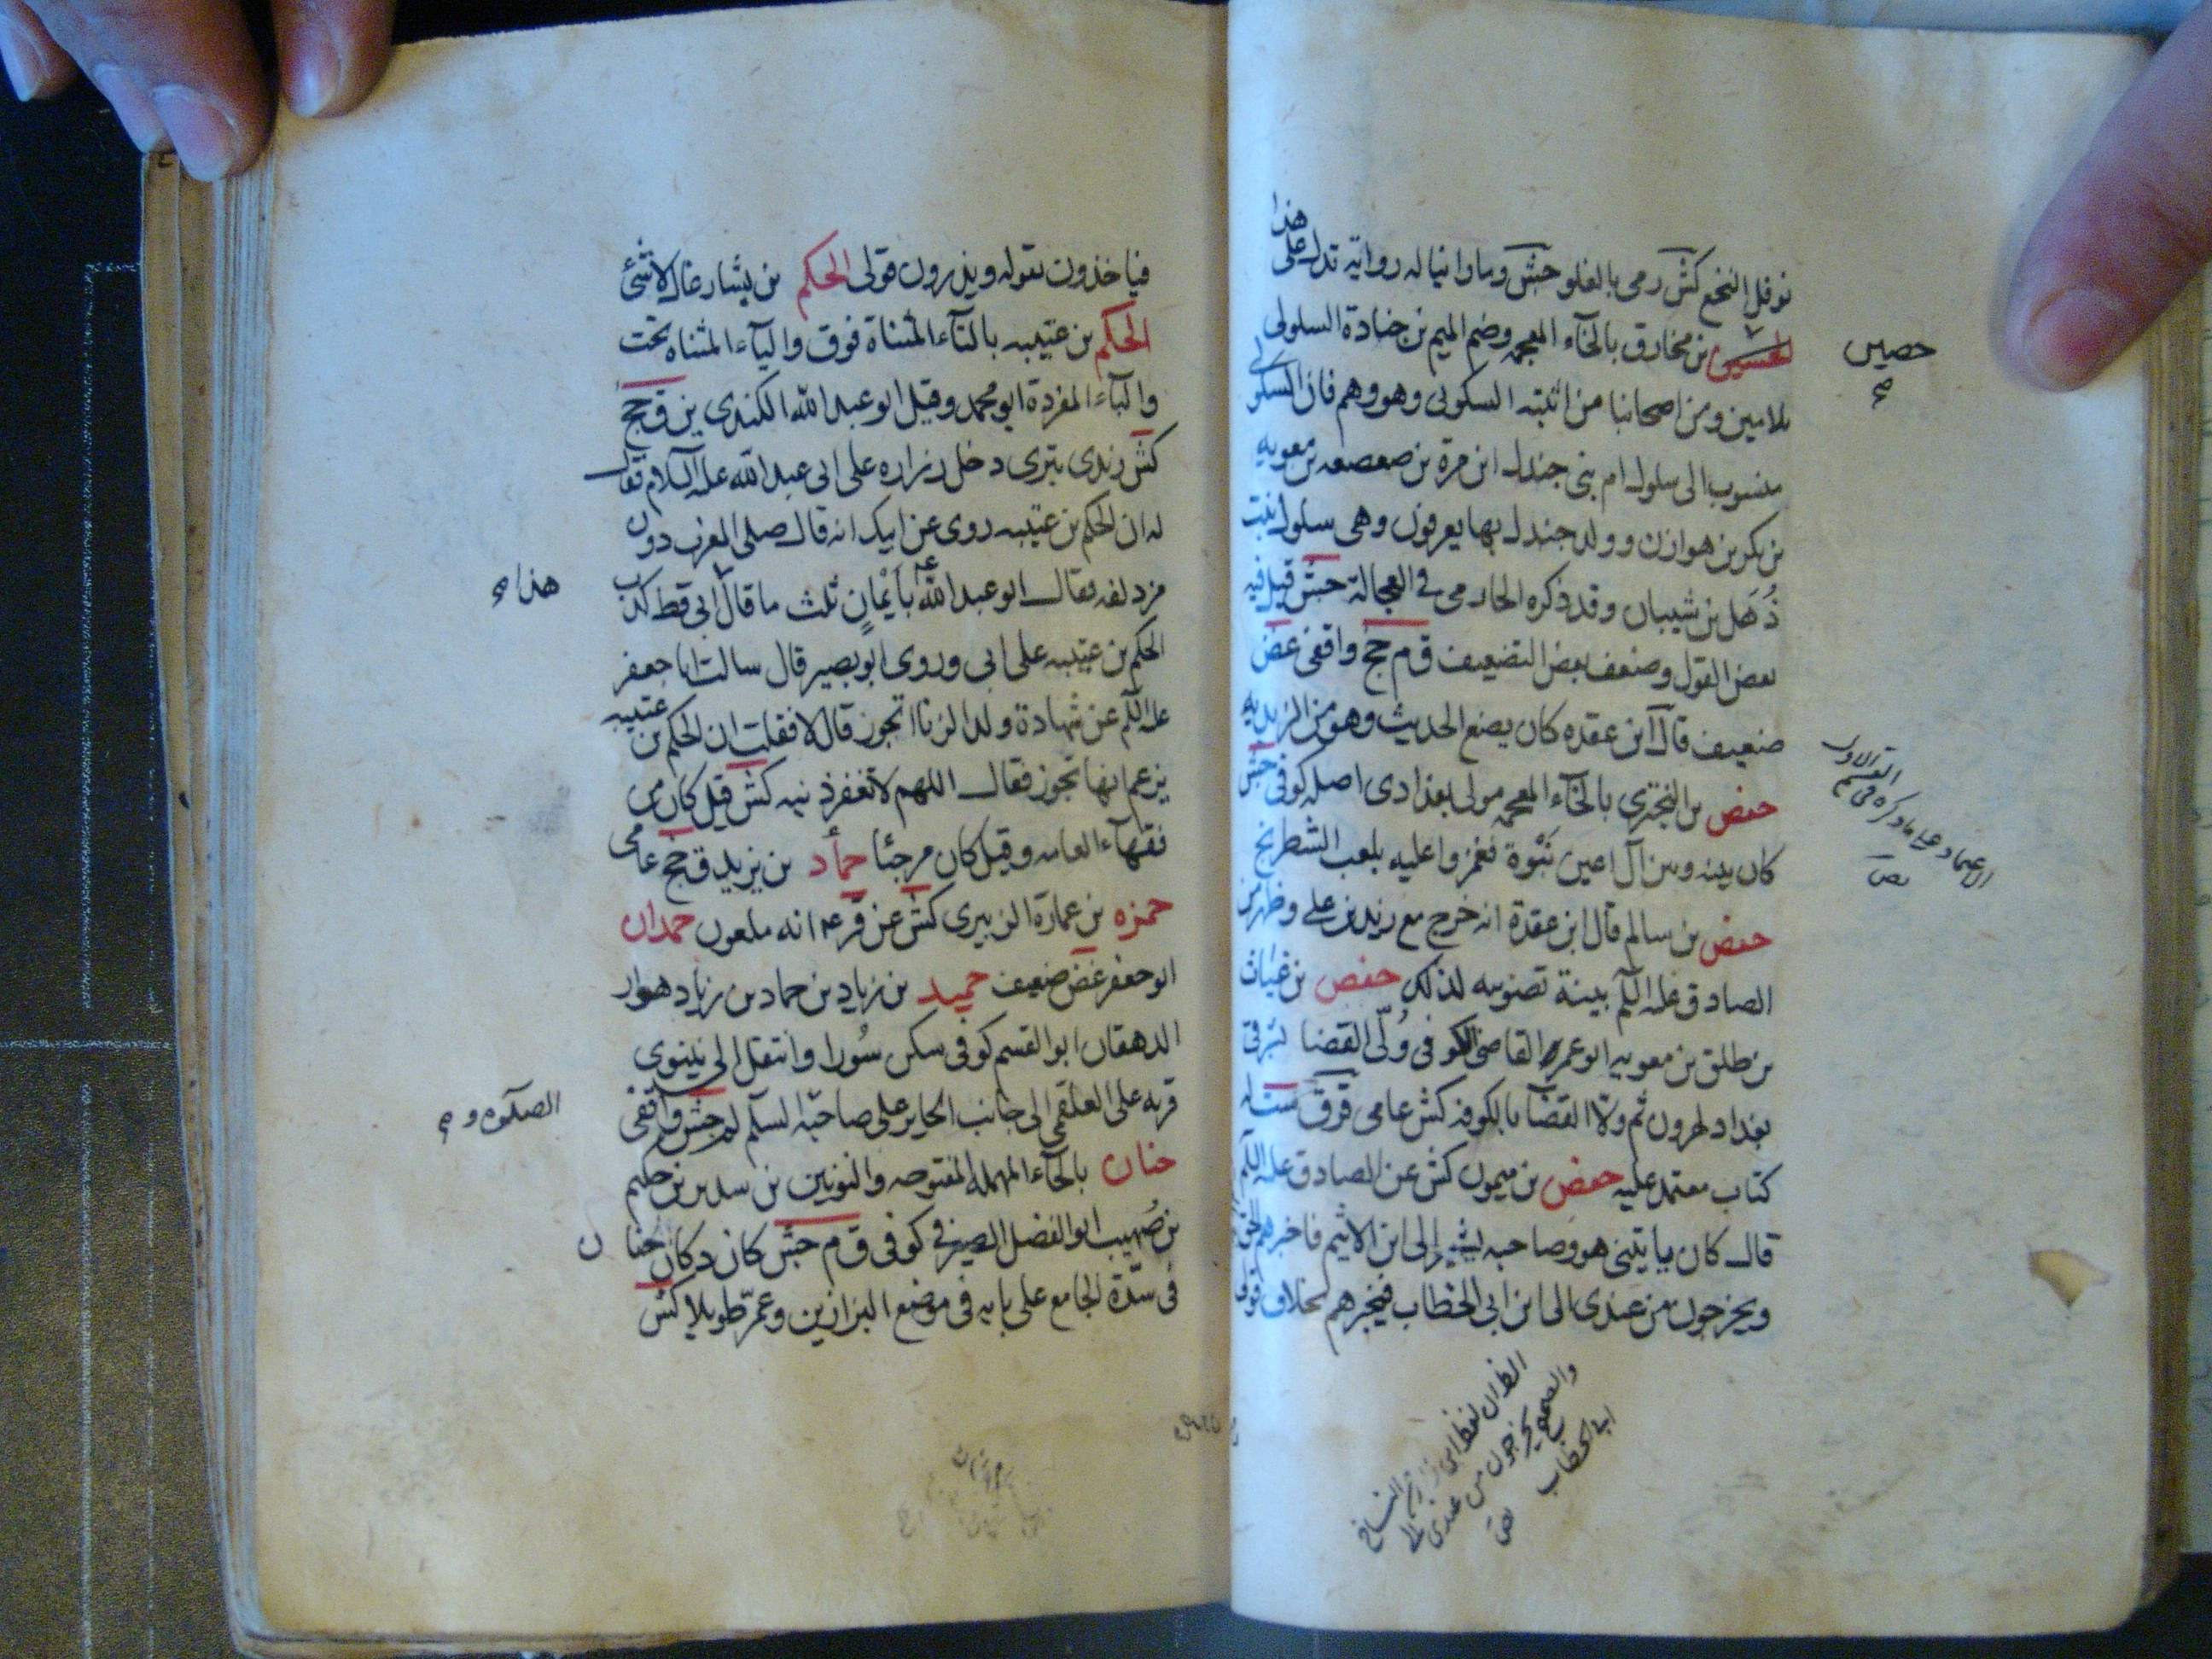 هذا
نوفل النخع كش رمى بالغلو جش وما راينا له رواية تدل على
الحسين بن مخارق بالخاء المعجمه وضم الميم بن جنادة السلولى
حصين
بلامين ومن اصحابنا من اثبته السكونى وهو وهم فان السكو لى
منسوب الى سلول ام بنى جندل ابن مرة بن صعصعه بن معويه
بن بكر بن هوازن وولد جندل بها يعرفون وهى سلول بنت
ذُهَل بن شيبان وقد ذكره الحازمى فى العجالة جش قيل فيه
بعض القول وضعف بعض التضعيف ق م جخ واقفى غض
ضعيف قال ابن عقده كان يضع الحديث وهو من الزيديه
حفص بن البخترى بالخاء المعجمه مولى بغدادى اصله كوفى جش
كان بينه وبين آل اعين نَبْوة فغمزوا عليه بلعب الشطرنج
حفص بن سالم قال ابن عقدة انه خرج مع زيد بن على وظهر من
الصادق عله السلم بينة تصويبه لذلك حفص بن غياث
بن طلق بن معويه ابو عمر القاضى الكوفى وُلّى القضا لشرقى
بغداد لهرون ثم ولاه القضا بالكوفه كش عامى ق ق ست له
كتاب معتمد عليه حفص بن ميمون كش عن الصادق عله السلم
قال كان ياتينى هو وصاحبه يشير الى ابن الاثيم فاخبرهم الحق
ويخرجون من عندى الى ابن ابى الخطاب فيخبرهم بخلاف قولى
والصحيح يخرجون من عندى الى
ابى الخطاب
فياخذون بقوله ويذرون قولى الحكم بن بشار غال لا شئ
الحكم بن عتيبه بالتاء المثناة فوق والياء المثناه تحت
والباء المفردة ابو محمد وقيل ابو عبد الله الكندى ين ق جخ
كش زيدى بترى دخل زراره على ابى عبد الله عله السلام فقال
له ان الحكم بن عتيبه روى عن ابيك انه قال صلى المغرب دون
مزدلفه فقال ابو عبد الله ع بأَيْمانٍ ثلث ما قال ابى قط كذب
هذا
الحكم بن عتيبه على ابى وروى ابو بصير قال سالت ابا جعفر
عله السلم عن شهادة ولد الزنا اتجوز قال لا فقلت ان الحكم بن عتيبه
يزعم انها تجوز فقال اللهم لا تغفر ذنبه كش قيل كان من
فقهاء العامه وقيل كان مرجئا حماد بن يزيد ق جخ عامى
حمزه بن عمارة الزبيرى كش عن انه ملعون حمدان
ابو جعفر غض ضعيف حميد بن زياد بن حماد بن زياد هوار
الدهقان ابو القسم كوفى سكن سُورا وانتقل الى نينوى
قريه على العلقمى الى جانب الحاير على صاحبه السلم لم جش واقفى
الصلوه و
حنان بالحاء المهمله المفتوحه والنونين بن سدير بن حكيم
بن صُهيب ابو الفضل الصيرفى كوفى ق م جش كان دكان حنا ن
فى سدّة الجامع على بابه فى موضع البزازين وعمّر طويلا كش